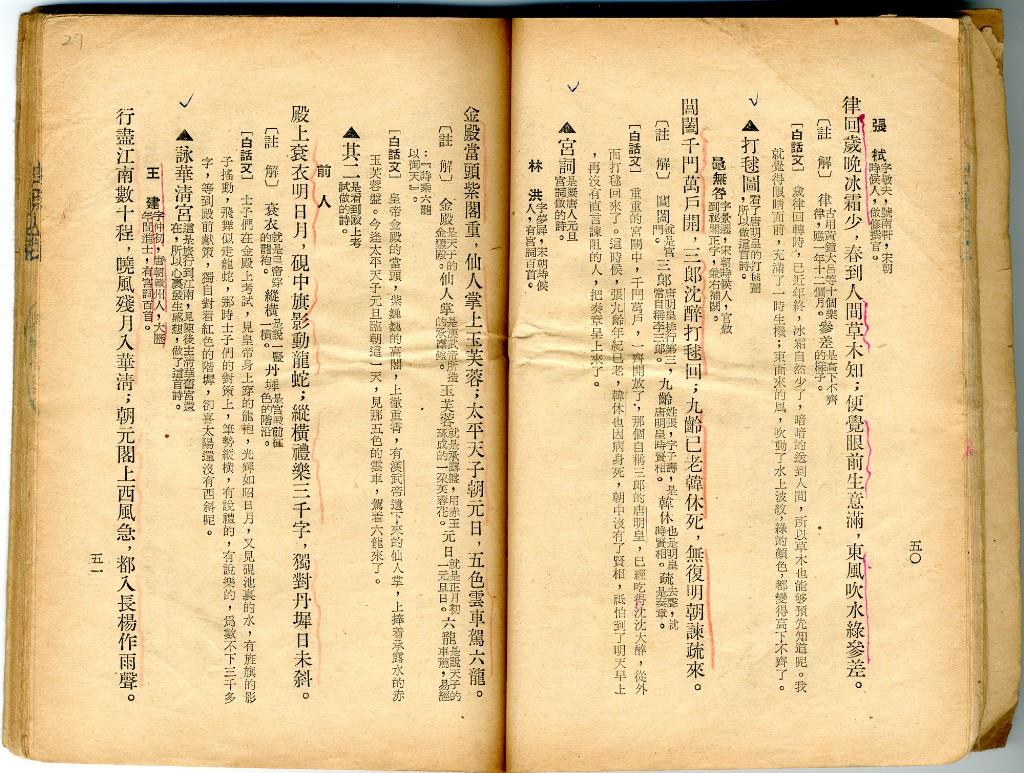 張 栻 字敬夫，號南軒，宋朝時候人，做修撰官。
律回歲晚冰霜少，春到人間草木知；便覺眼前生意滿，東風吹水綠參差。
〔註 解〕律 古用黃鐘大呂等十個樂律，應一年十二個月。參差 是高下不齊的樣子。
〔白話文〕歲律回轉時，已近年終，冰霜自然少了，暗暗的送到人間，所以草木也能够預先知道呢。我
就覺得眼睛面前，充滿了一時生機；東面來的風，吹動了水上波紋，綠的顏色，都變得高下不齊了。
▲打毬圖 看了唐明皇的打毬圖，所以做這首詩。
晁無咎 字景遷，宋朝時候人，官做到祕閣正字，兼右補闕。
閶闔千門萬戶開，三郎沈醉打毬回；九齡已老韓休死，無復明朝諫疏來。
〔註 解〕閶闔 就是宮門。三郎 唐明皇排行第三，常自稱李三郎。九齡 姓張，字子壽，是唐明皇時賢相。韓休 也是明皇時賢相。疏 去聲，就是奏章。
〔白話文〕重重的宮闕中，千門萬戶，一齊開放了，那個自稱三郎的唐明皇，已經吃得沈沈大醉，從外
面打毬回來了。這時候，張九齡年紀已老，韓休也因病身死，朝中沒有了賢相，祗怕到了明天早上
，再沒有直言諫阻的人，把奏章呈上來了。
▲宮詞 是擬唐人元旦宮詞做的詩。
林 洪 字夢屏，宋朝時候人，有宮詞百首。
五〇
29
金殿當頭紫閣重，仙人掌上玉芙蓉；太平天子朝元日，五色雲車駕六龍。
〔註 解〕金殿 是天子的金鑾殿。仙人掌 是漢武帝所造的承露盤。玉芙蓉 就是承露盤，用赤玉琢成的一朶芙蓉花。元日 就是正月初一元旦日。六龍 是說天子的車駕，易經
：『時乘六龍以御天。』
〔白話文〕皇帝金殿的當頭，紫巍巍的高閣，上徹重霄，有漢武帝遺下來的仙人掌，上捧着承露水的赤
玉芙蓉盤。今逢太平天子元旦臨朝這一天，見那五色的雲車，駕着六龍來了。
▲其二 是看到殿上考試做的詩。
前 人
殿上袞衣明日月，硯中旗影動龍蛇；縱橫禮樂三千字，獨對丹墀日未斜。
〔註 解〕袞衣 就是皇帝穿的龍袍。縱橫 是說一豎一橫。丹墀 是宮殿前種色的階沿。
〔白話文〕士子們在金殿上考試，見皇帝身上穿的龍袍，光輝如昭日月，又見硯池裏的水，有旌旗的影
子搖動，飛舞似走龍蛇，那時士子們的對策上，筆勢縱橫，有說禮的，有說樂的，爲數不下三千多
字，等到殿前獻策，獨自對着紅色的階墀，卻喜太陽還沒有西斜呢。
▲詠華清宮 這是旅行到江南，見陳後主清華舊宮還在，所以心裏發生感想，做了這首詩。
王 建 字仲初，唐朝人，大歷年間進士，有宮詞百首。
行盡江南數十程，曉風殘月入華清；朝元閣上西風急，都入長楊作雨聲。
五一